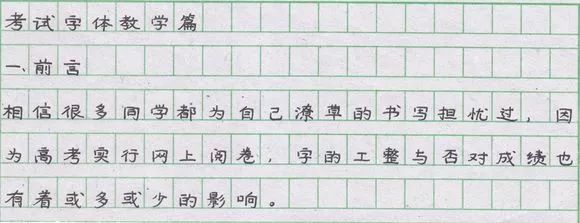 考试字体教学篇
一、前言
相信很多同学都为自己潦草的书写担忧过，因
为高考实行网上阅卷，字的工整与否对成绩也
有着或多或少的影响。